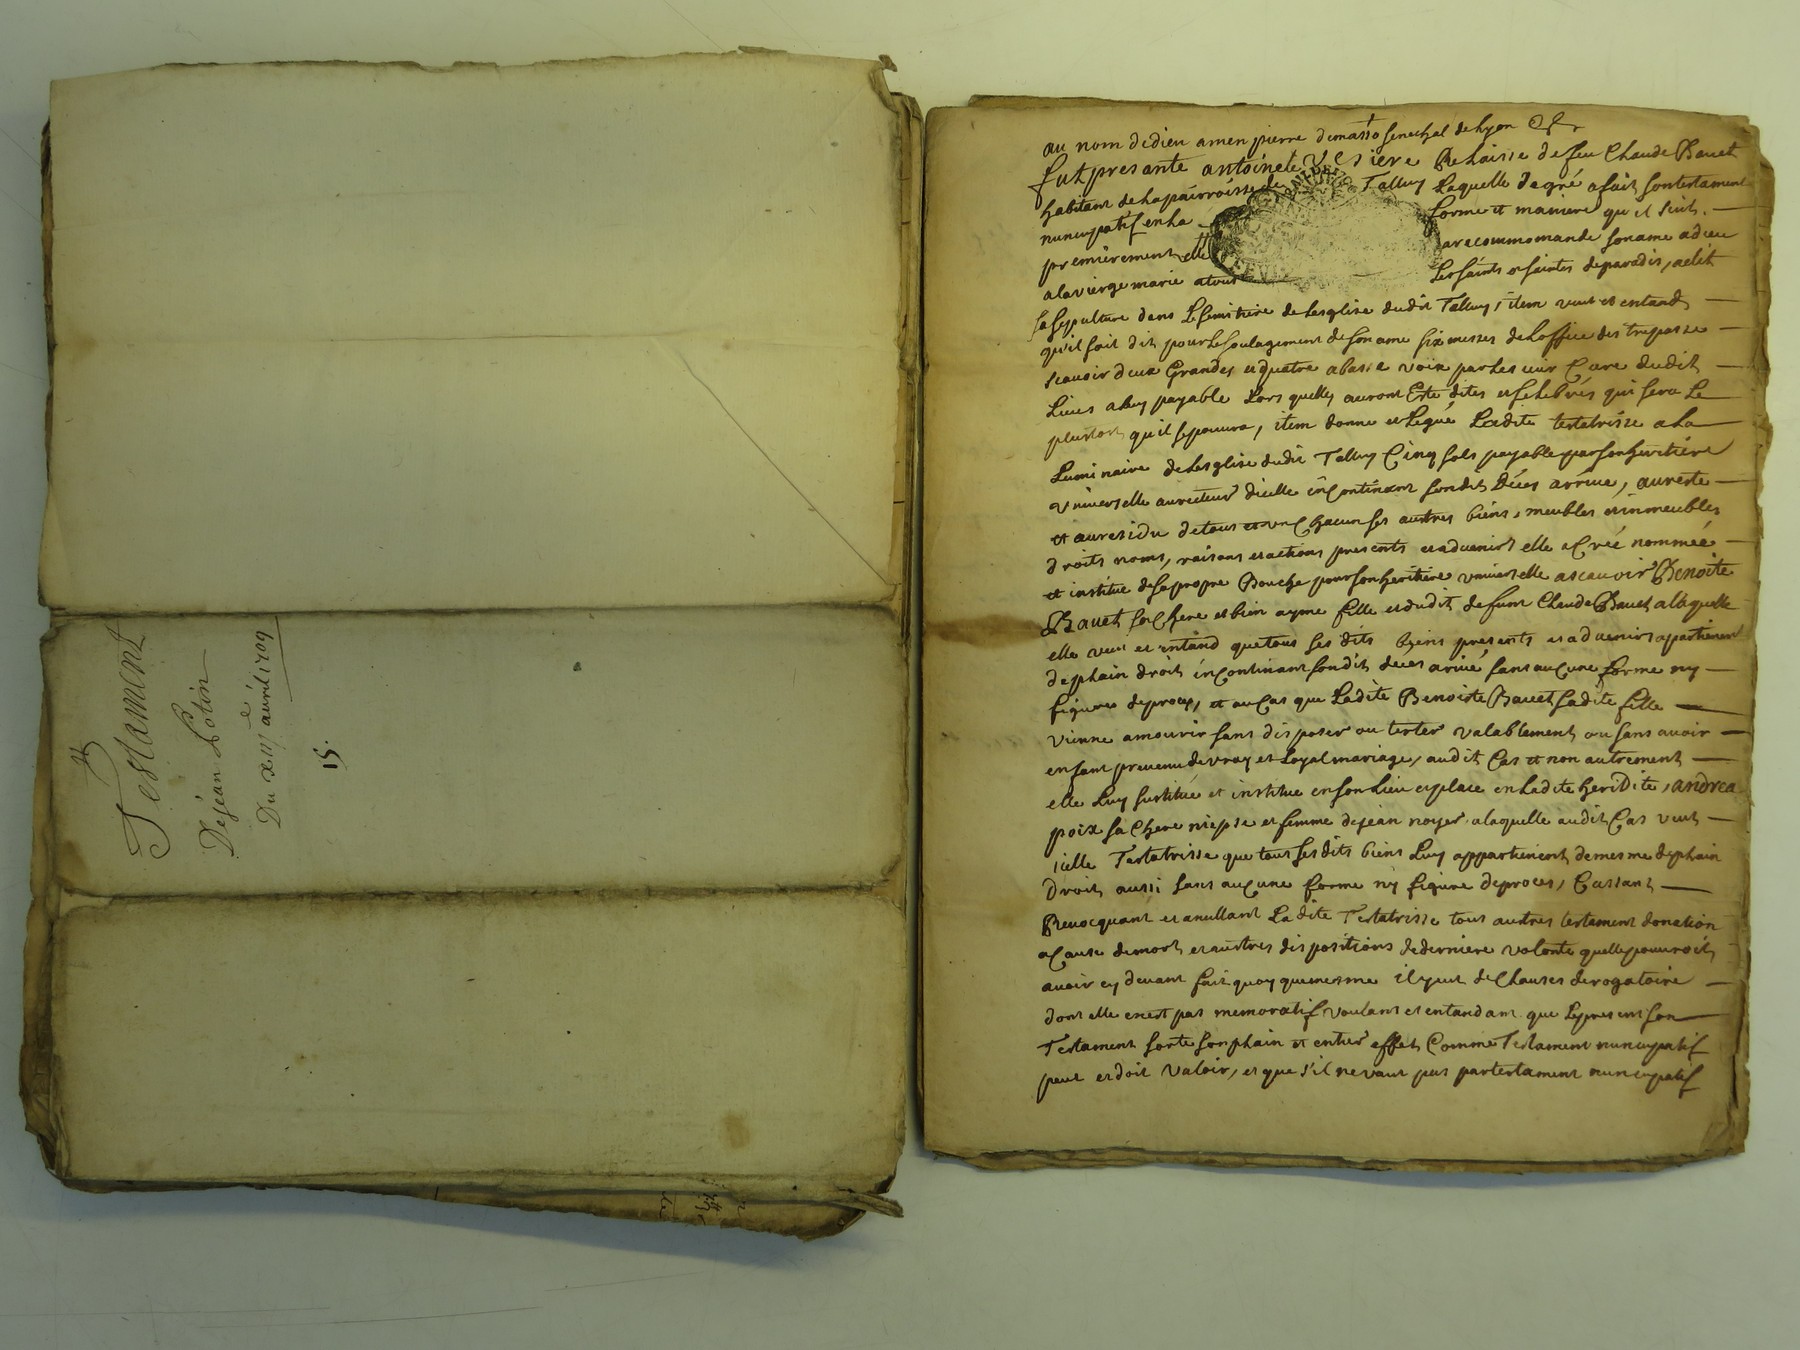 Testament
De jean Potin
Du xiij e avril 1709
15.
au nom de dieu amen pierre demasso senechal de lyon &
fut presante antoinete Vesiere Relaisse de feu Claude Bavet
habitant de la parroisse de Talluy Laquelle de gré a fait son testament
nuncupatif en la forme et maniere qu il suit.
premierement elle a recommomande son ame a dieu
a la vierge marie a tous les saints et saintes de paradis, a elit
sa sepulture dans Le semitiere de l'esglise dudit Talluy, item veut et entand
qu'il soit dit pour le soulagement de son ame six messes de l'office des trepasse
scavoir deux Grandes et quatre a basse voix par les Cure dudit
Lieu a luy payable Lors quelles auront Esté dites et selebrés qui sera Le
plustost qu'il se pourra, item donne et Legue Ladite testatrisse a La
Luminaire de l'esglise dudit Talluy Cinq sols payable par son heritiére
universelle au recteur d'icelle incontinant son dit Déces arrive, au reste
et au residu de tous et un Chacun ses autres biéns, meubles et inmeubles
droits noms, raisons et actions presents et advenirs elle a Créé nommée
et institue de sa propre Bouche pour son heritiere universelle a scavoir Benoite
Bavet sa Chere et bien ayme fille et dudit defunt Claude Bavet a laquelle
elle veut et entand que tous ses dits biens presents et advenirs apartienent
de plain droit incontinant son dit déces arivé sans aucune forme ny
figures de proces, et au Cas que Ladite Benoiste Bavet sadite fille
vienne a mourir sans disposer ou tester valablement ou sans avoir
enfant prevenu de vray et Loyal mariage, audit Cas et non autrement
elle Luy sustitue et institue en son Lieu et place en Ladite heridite, andrea
poix sa Chere niepse et femme de jean noyer a laquelle audit Cas veut
icelle Testatrisse que tous ses dits biens Luy appartienent de mesme de plain
Droit aussi sans aucune forme ny figure de proces, Cassant
Revocquant et anullant La dite Testatrisse tous autres testament donation
a Cause de mort et austres dispositions de derniere volonte quelle pouroit
avoir cy devant fait quoy que mesme il y eut de Clauses derogatoire
dont elle en est pas memoratif voulant et entandant que Le present son
Testament sorte son plain et entier effet Comme Testament nuncupatif
peut et doit valoir, et que s'il ne vaut pas par testament nuncupatif